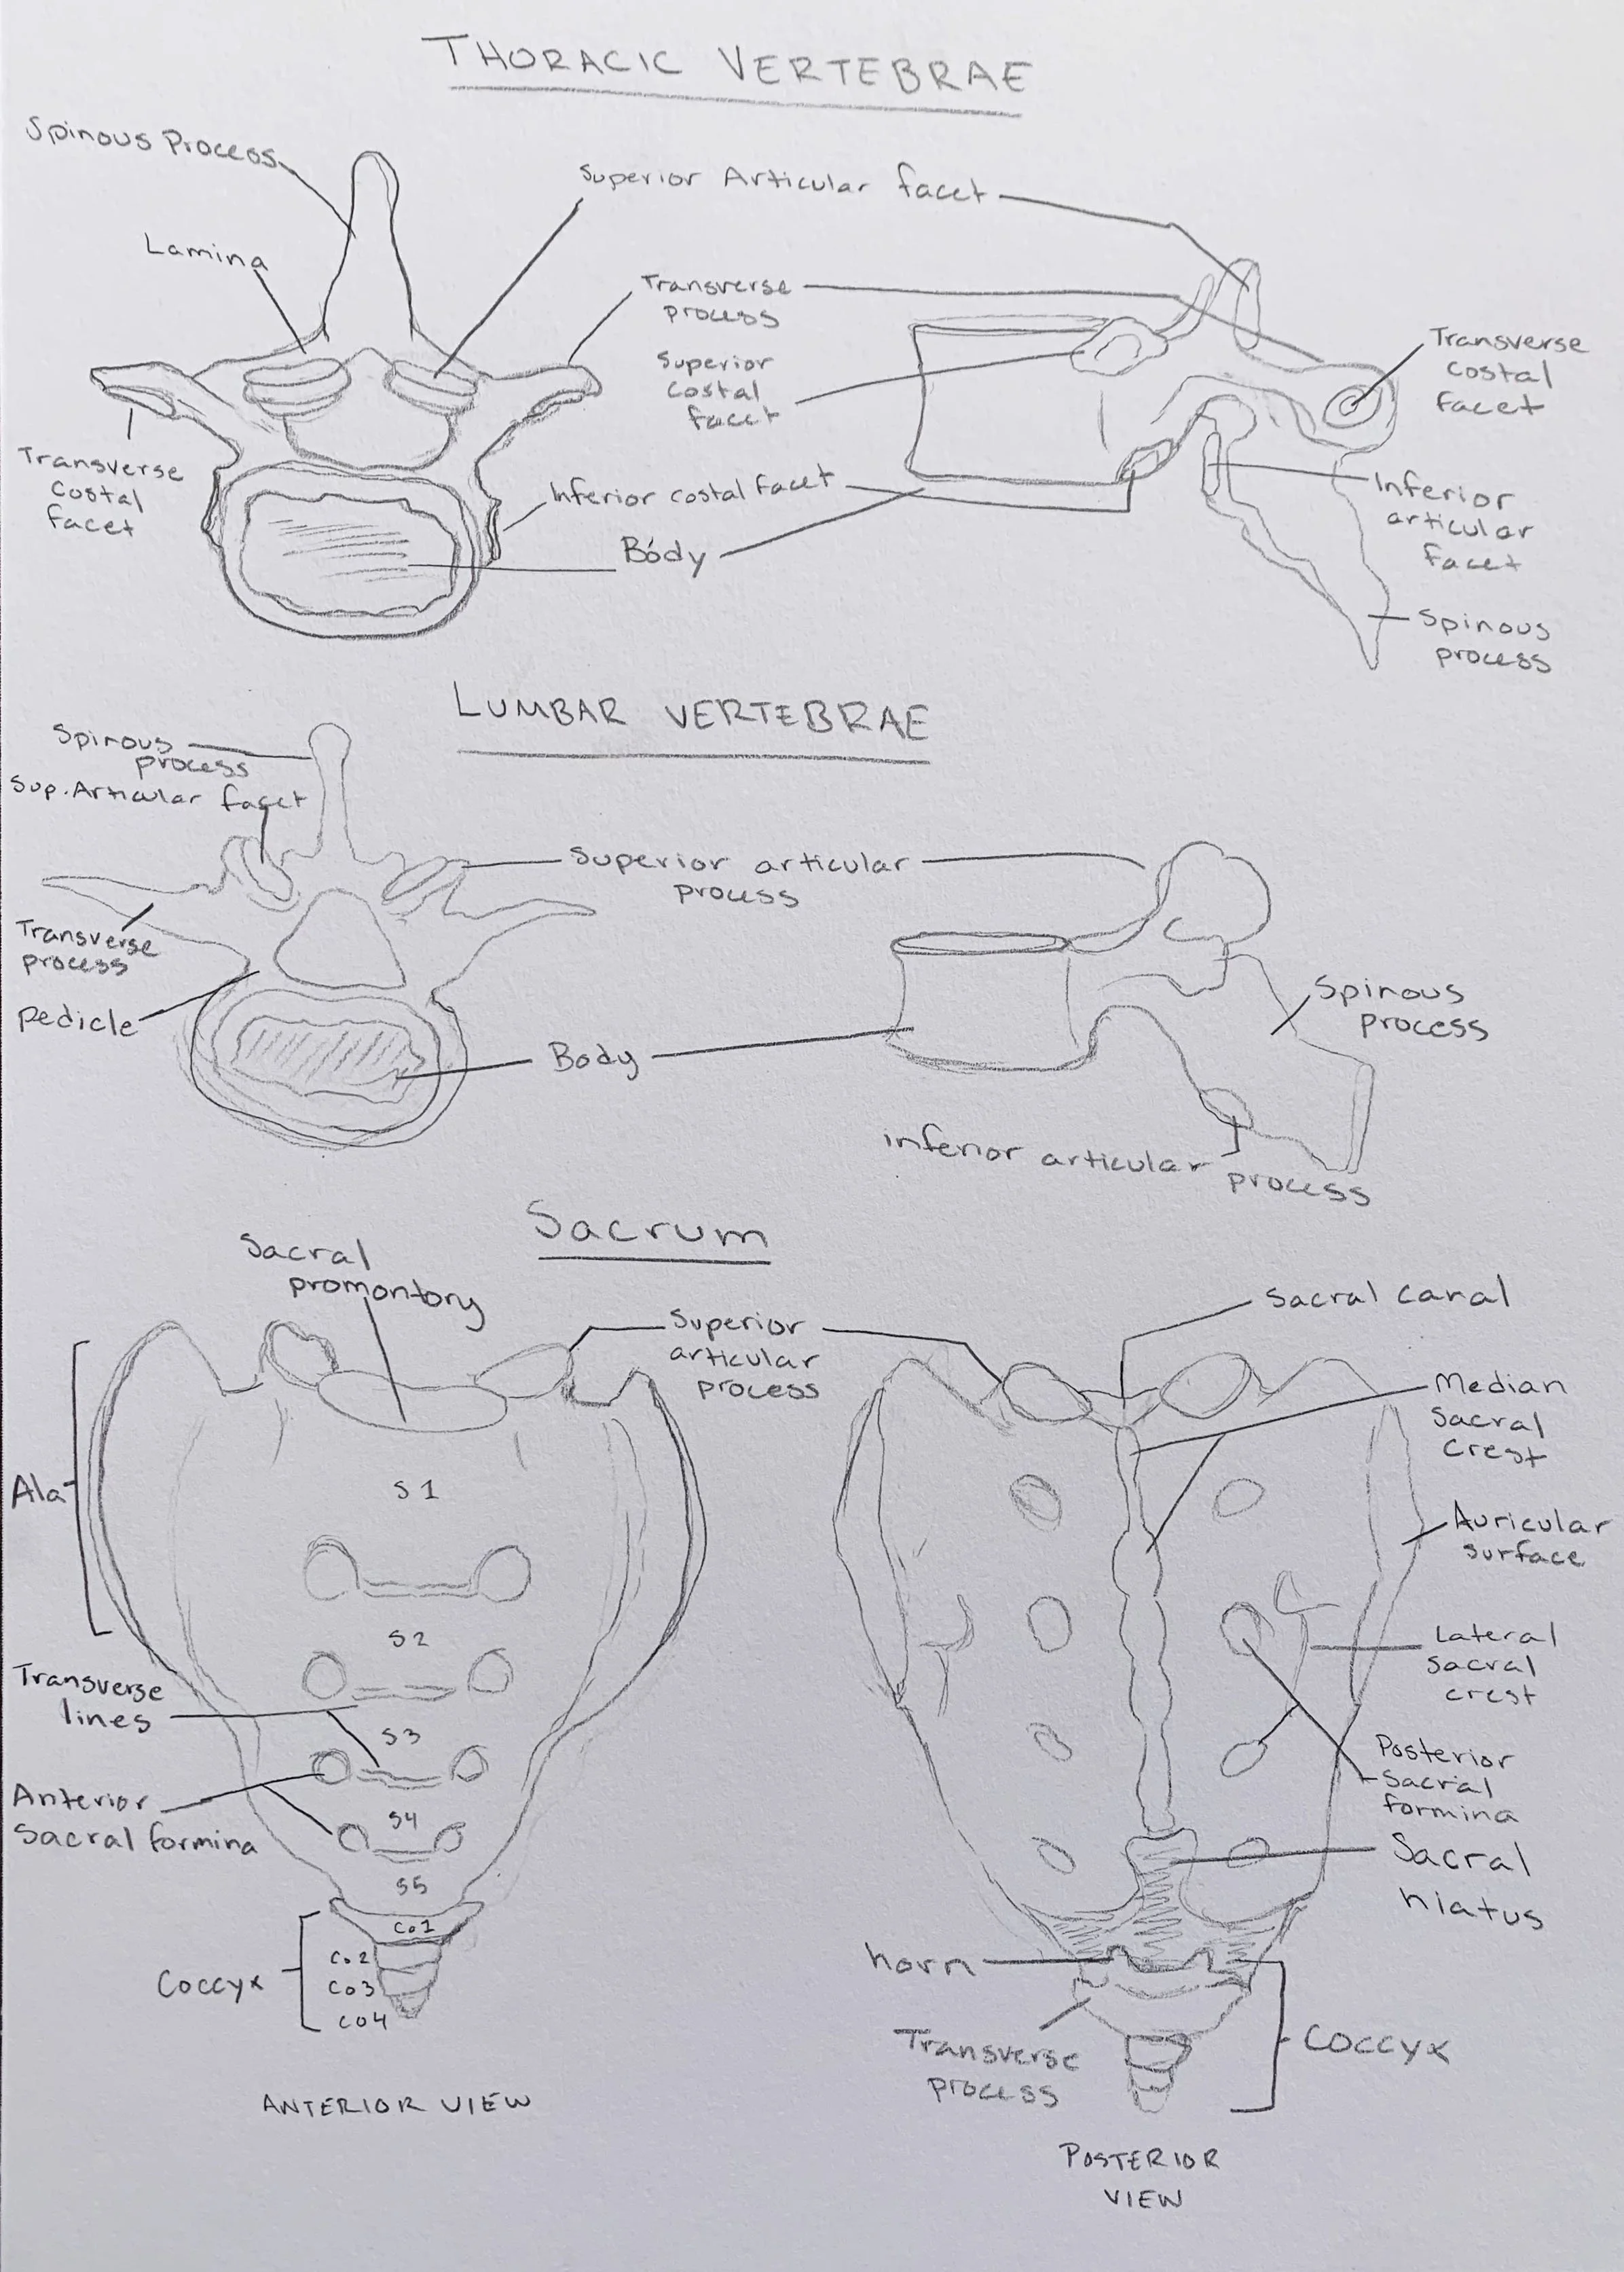 THORACIC VERTEBRAE
Spinous Process
Superior Articular facet
Lamina
Transverse
process
Superior
costal
facet
Transverse
costal
facet
Transverse
Costal
facet
Inferior costal facet
Body
Inferior
articular
facet
Spinous
process
LUMBAR VERTEBRAE
Spinous
process
Sup. Articular facet
Superior articular
process
Transverse
process
pedicle
Body
Spinous
process
inferior articular
process
Sacrum
Sacral
promontory
Superior
articular
process
Sacral canal
Median
sacral
crest
Ala
S1
Auricular
surface
S2
Lateral
sacral
crest
Transverse
lines
S3
Posterior
sacral
formina
Anterior
sacral formina
S4
Sacral
hiatus
S5
Co1
Co2
Co3
Co4
Coccyx
horn
Transverse
process
Coccyx
ANTERIOR VIEW
POSTERIOR
VIEW